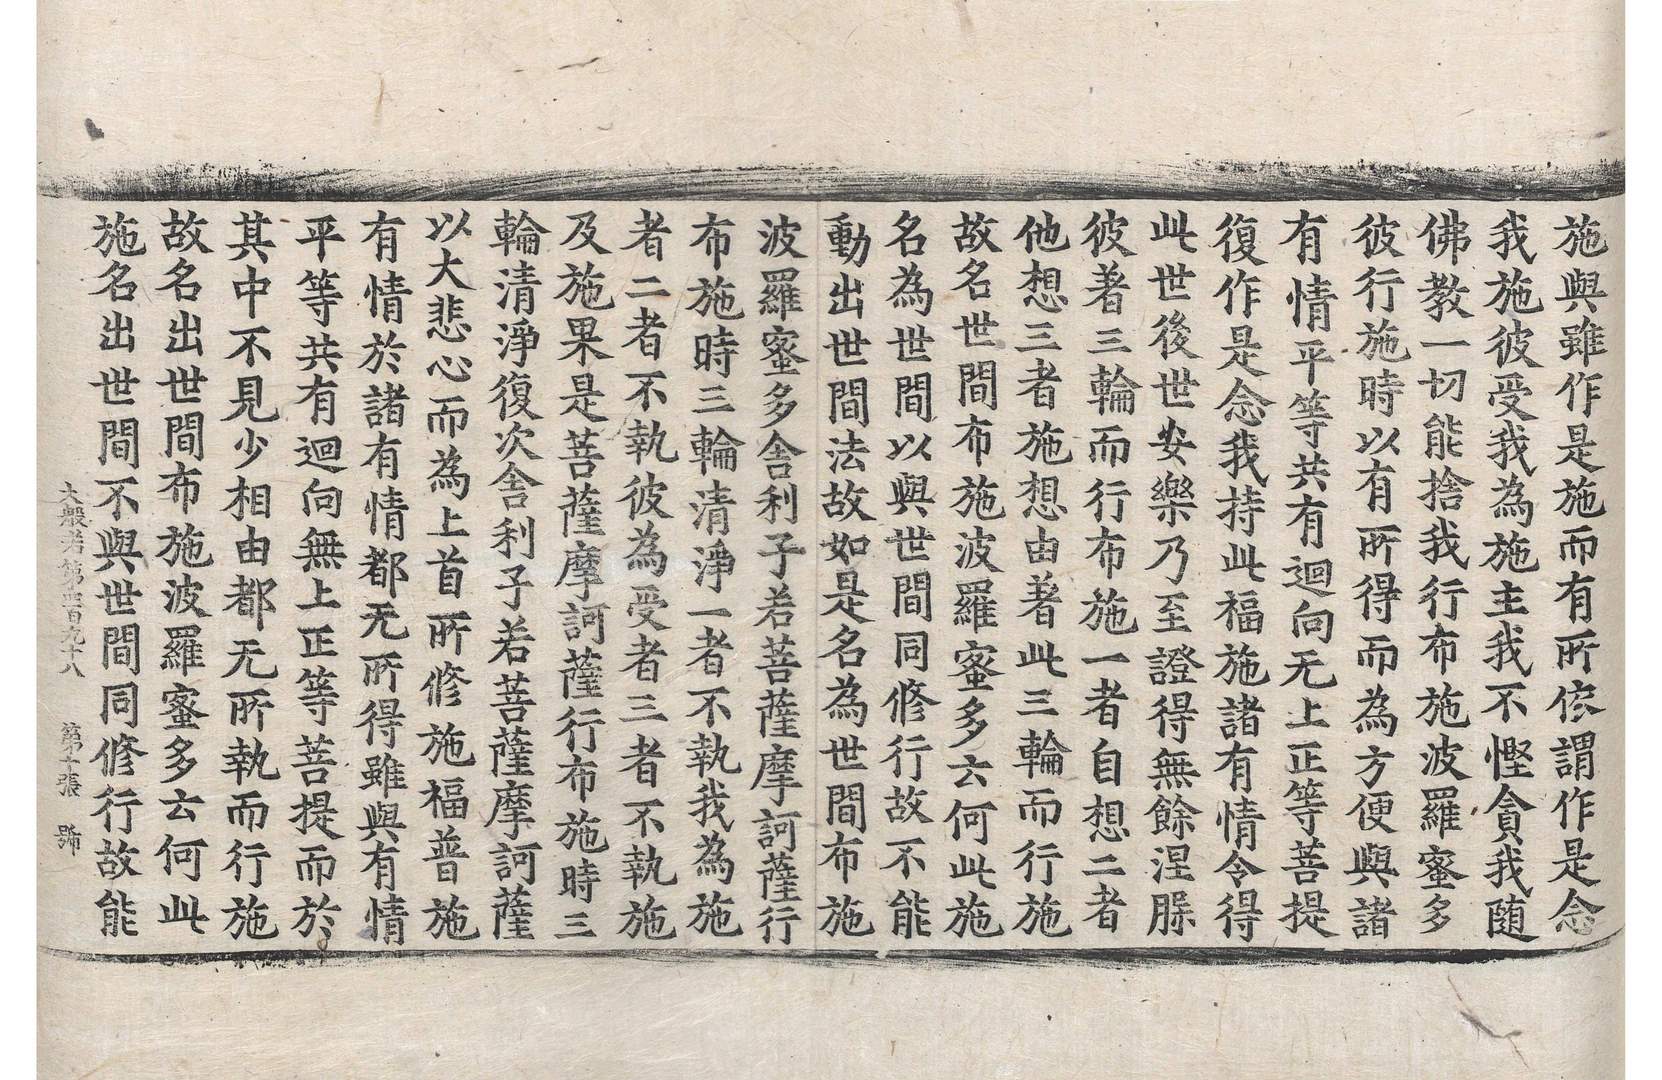 施與雖作是施而有所依謂作是念
我施彼受我為施主我不慳貪我随
佛教一切能捨我行布施波羅蜜多
彼行施時以有所得而為方便與諸
有情平等共有迴向无上正等菩提
復作是念我持此福施諸有情令得
此世後世安樂乃至證得無餘涅槃
彼著三輪而行布施一者自想二者
他想三者施想由著此三輪而行施
故名世間布施波羅蜜多云何此施
名為世間以與世間同修行故不能
動出世間法故如是名為世間布施
波羅蜜多舍利子若菩薩摩訶薩行
布施時三輪清淨一者不執我為施
者二者不執彼為受者三者不執施
及施果是菩薩摩訶薩行布施時三
輪清淨復次舍利子若菩薩摩訶薩
以大悲心而為上首所修施福普施
有情於諸有情都无所得雖與有情
平等共有迴向無上正等菩提而於
其中不見少相由都无所執而行施
故名出世間布施波羅蜜多云何此
施名出世間不與世間同修行故能
大般若第四百九十八 第十張 號